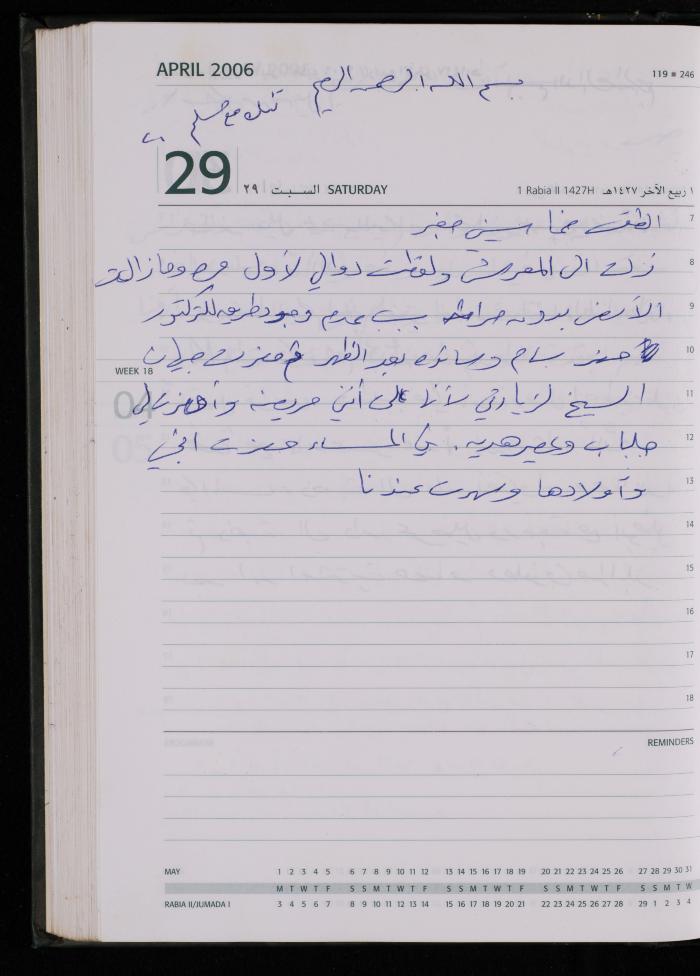 APRIL 2006
119 ■ 246
بسم الله الرحمن الرحيم
29
٢٩ السبت SATURDAY
1 Rabia II 1427H ١ ربيع الآخر ١٤٢٧هـ
7
الطقس
8
نزلت الى المعرش ولقطت دوالي لأول مره وما زالت
9
الأرض بدون حراثه بسبب عدم وجود طريق للتركتور
10
حضر بسام وسائده بعد الظهر ثم حضرت جيران
WEEK 18
11
الشيخ لزيارتي لأنها على أنني مريضه وأحضرت لي
12
جلباب وعصير هديه. في المساء حضرت اختي
13
وأولادها وسهرت عندنا
14
15
16
17
18
REMINDERS
MAY 1 2 3 4 5 6 7 8 9 10 11 12 13 14 15 16 17 18 19 20 21 22 23 24 25 26 27 28 29 30 31
M T W T F S S M T W T F S S M T W T F S S M T W T F S S M T W
RABIA II/JUMADA I 3 4 5 6 7 8 9 10 11 12 13 14 15 16 17 18 19 20 21 22 23 24 25 26 27 28 29 1 2 3 4